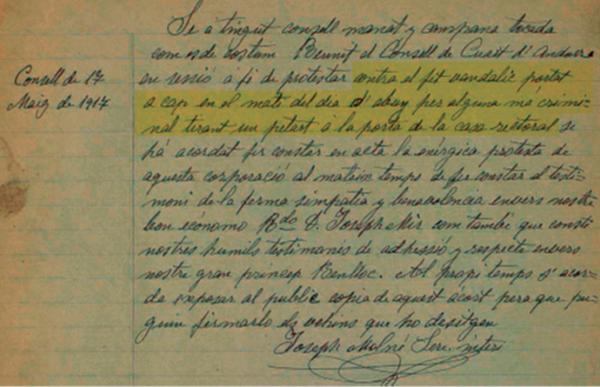 Consell de 17
Maig de 1917
Se a tingut consell manat y campana tocada
com es de costum Reunit el Consell de Cuart d'Andorra
en sesió a fi de protestar contra el fet vandalic portat
a cap en el mati del dia d'abuy per alguna má crimi-
nal tirant un petart á la porta de la casa rectoral se
há acordat fer constar en acta la enérgica protesta de
aquesta corporació al mateix temps de fer constar el testi-
moni de la ferma simpatia y benevolencia envers nostre
bon ecónomo Rdo D. Joseph Mir com també que consti
nostres humils testimonis de adhessió y respecte envers
nostre gran princep Benlloc. Al propi temps s'acor-
da exposar al public copia de aquest acort pera que pu-
guin firmarlo els vehins que ho desitgen
Joseph Molné Secre.